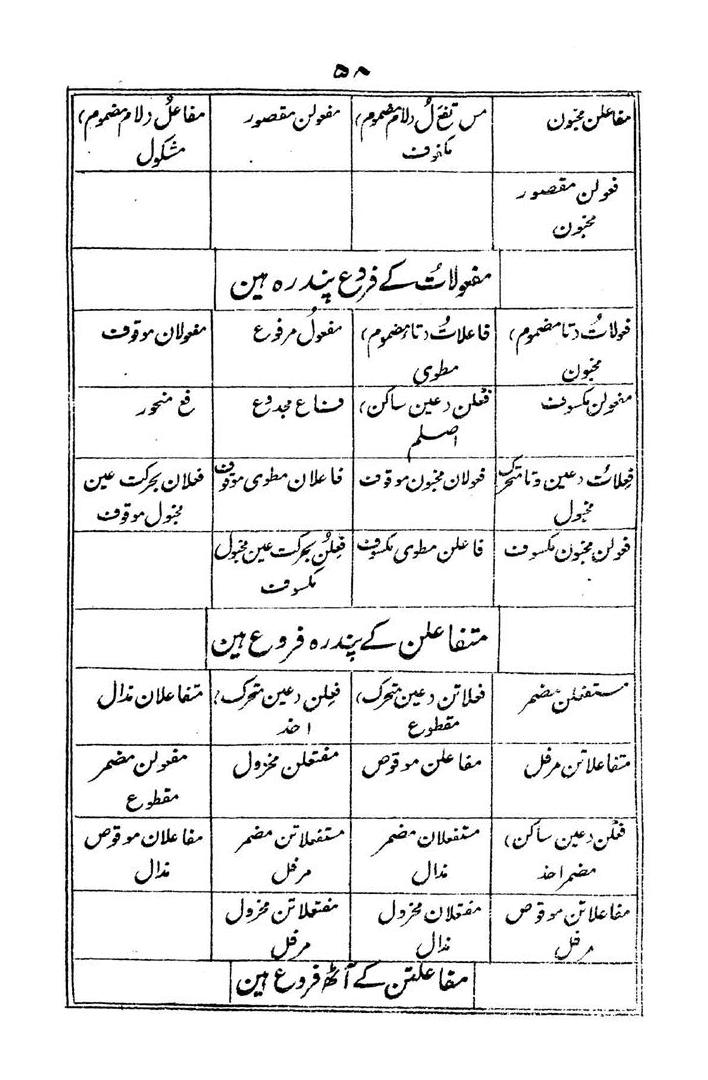 ۵۸
مفاعلن مخبون
مس تفع لُ (لام مضموم)
مکفوف
مفعولن مقصور
مفاعلُ (لام مضموم)
مشکول
فعولن مقصور
مخبون
مفعولاتُ کے فروع پندرہ ہین
فعولاتُ (تا مضموم)
مخبون
فاعلاتُ (تا مضموم)
مطوی
مفعولُ مرفوع
مفعولان موقوف
مفعولن مکسوف
فعْلن (عین ساکن)
اصلم
فاع مجدوع
فع منحور
فعِلاتُ (عین وتا متحرک)
مخبول
فعولان مخبون موقوف
فاعلان مطوی موقوف
فعلان بحرکت عین
مخبول موقوف
فعولن مخبون مکسوف
فاعلن مطوی مکسوف
فعِلن بحرکت عین مخبول
مکسوف
متفاعلن کے پندرہ فروع ہین
مستفعلن مضمر
فعلاتن (عین متحرک)
مقطوع
فعِلن (عین متحرک)
احذ
متفاعلان مذال
متفاعلاتن مرفل
مفاعلن موقوص
مفتعلن مخزول
مفعولن مضمر
مقطوع
فعْلن (عین ساکن)
مضمر احذ
مستفعلان مضمر
مذال
مستفعلاتن مضمر
مرفل
مفاعلان موقوص
مذال
مفاعلاتن موقوص
مرفل
مفتعلان مخزول
مذال
مفتعلاتن مخزول
مرفل
مفاعلتن کے آٹھ فروع ہین